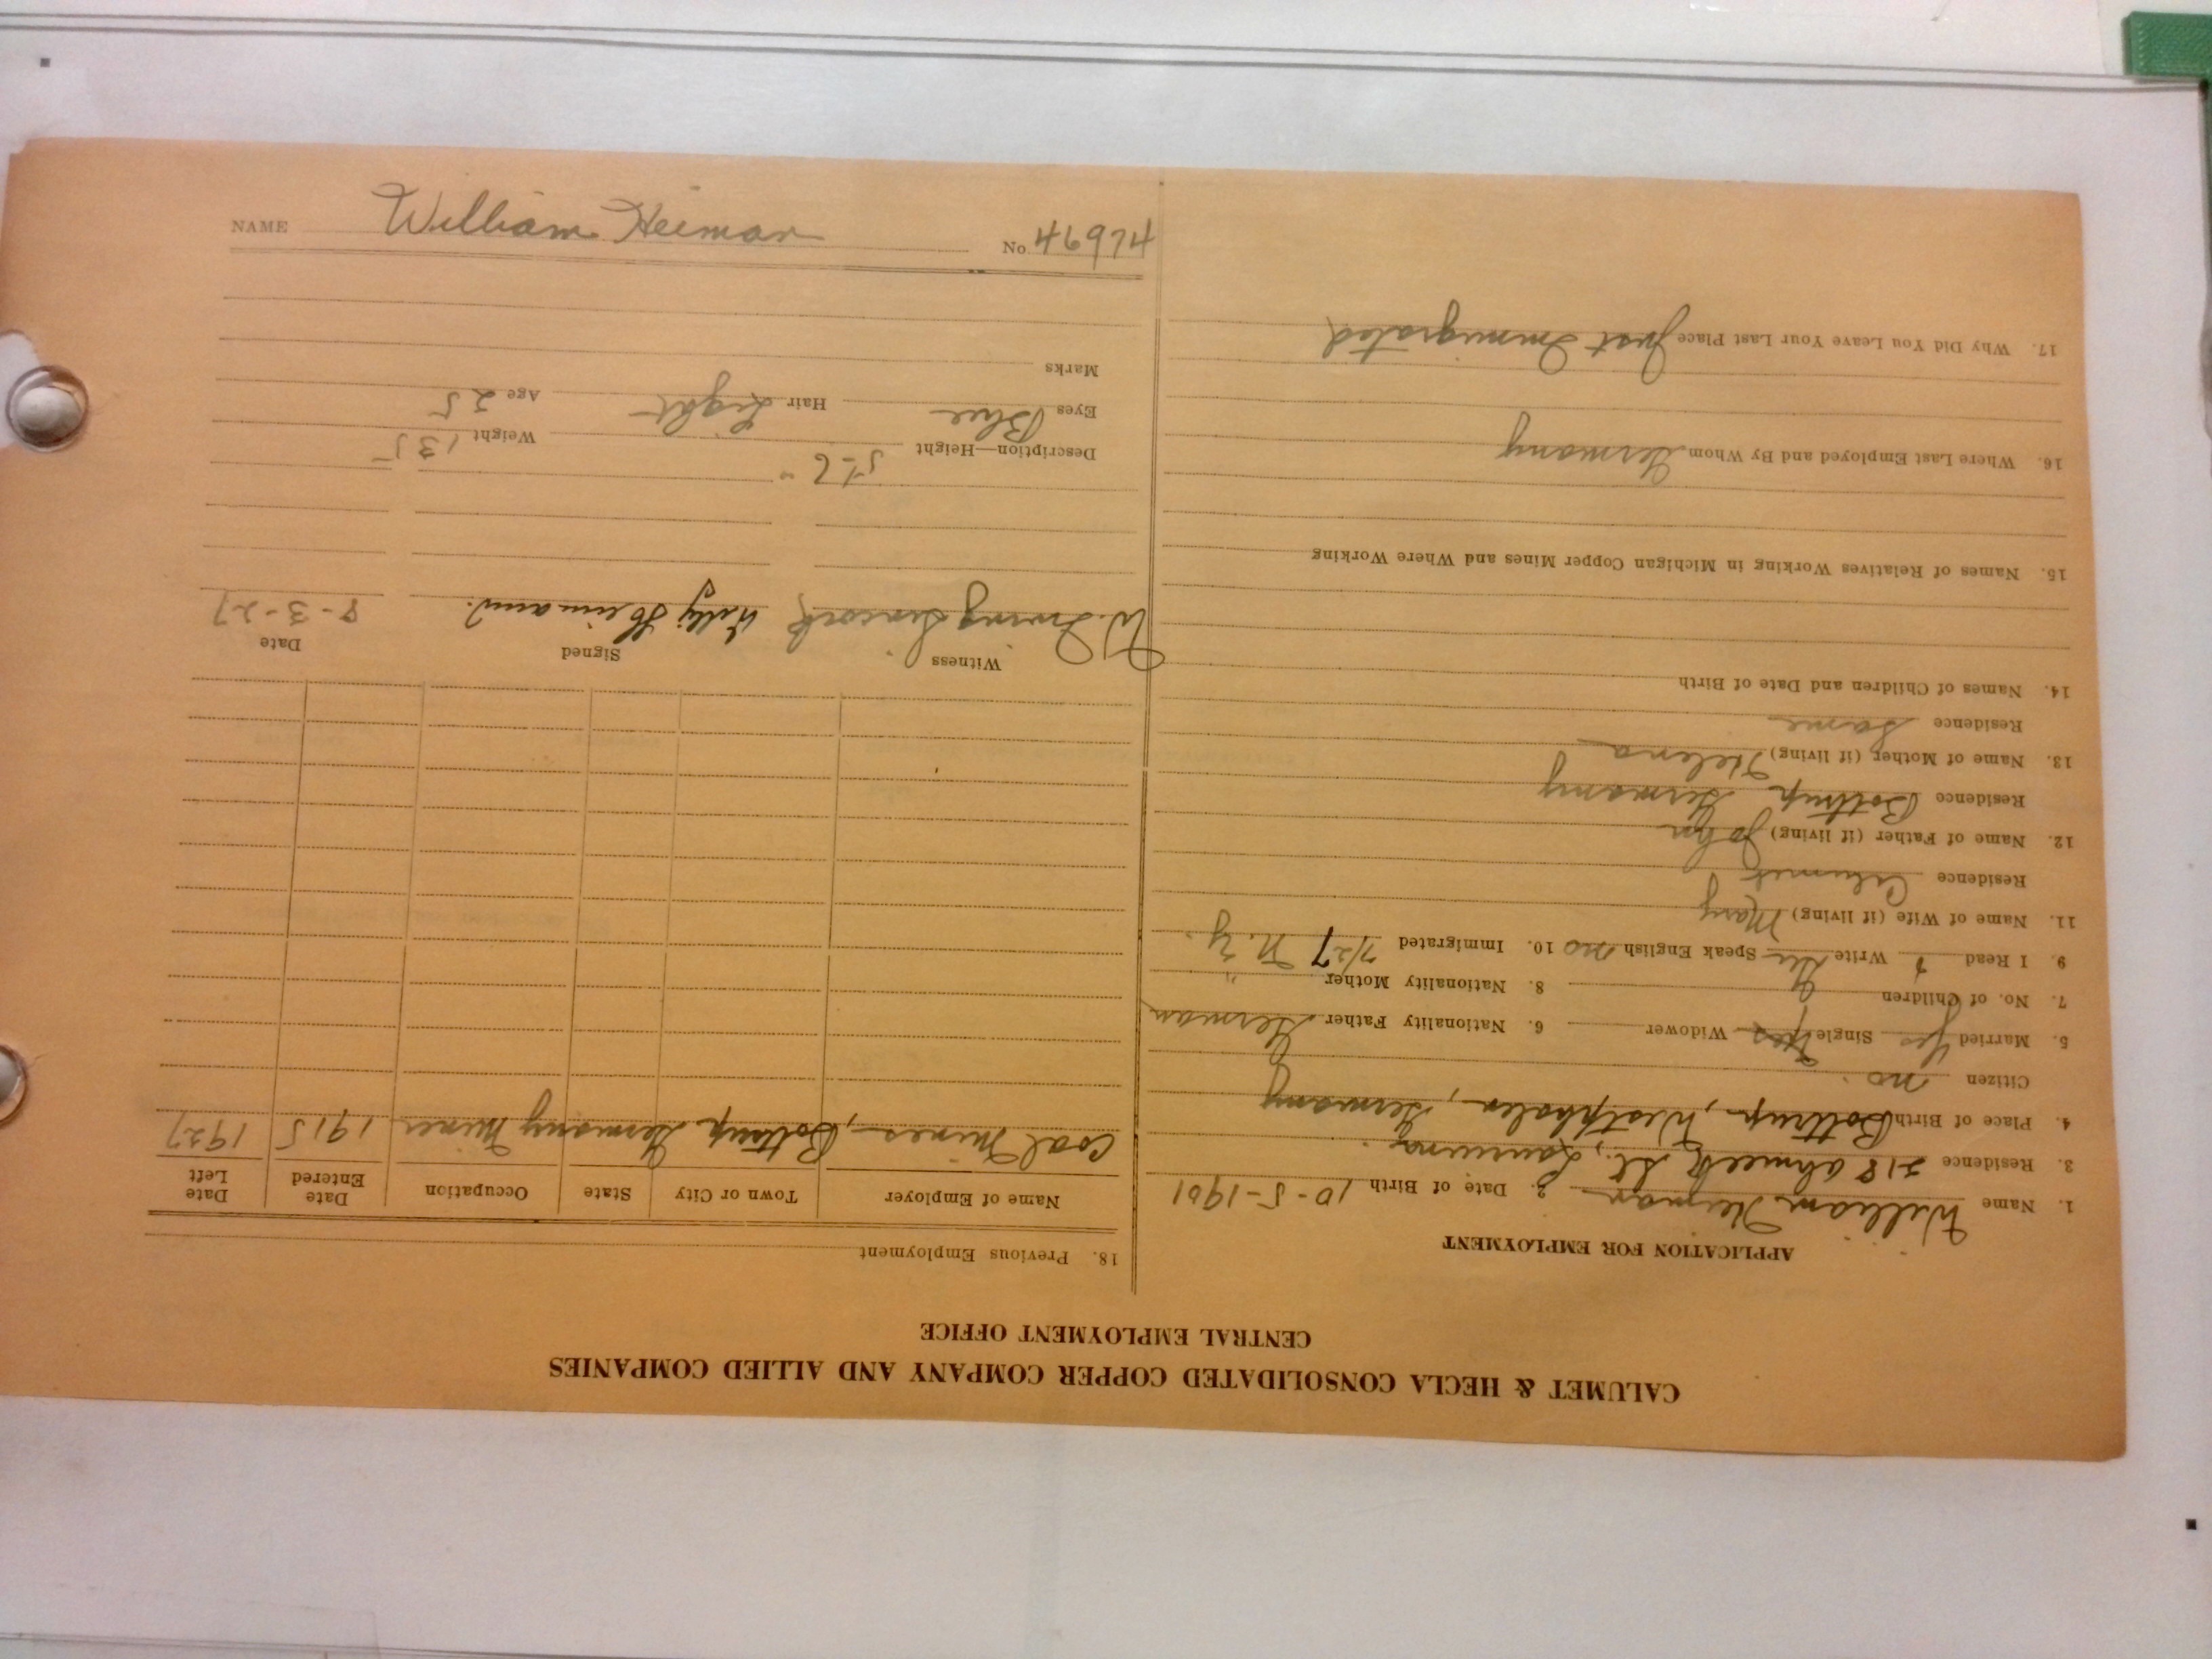 CALUMET & HECLA CONSOLIDATED COPPER COMPANY AND ALLIED COMPANIES
CENTRAL EMPLOYMENT OFFICE
APPLICATION FOR EMPLOYMENT
1. Name William Heiman 2. Date of Birth 10-5-1901
3. Residence 318 Ahmeek St., Laurium
4. Place of Birth Bottrup, Westphalen, Germany
Citizen no
5. Married Yes Single Yes Widower 6. Nationality Father German
7. No. of Children 8. Nationality Mother "
9. I Read Write Ger Speak English no 10. Immigrated 7/27 N.Y.
11. Name of Wife (if living) Mary
Residence Calumet
12. Name of Father (if living) John
Residence Bottrup Germany
13. Name of Mother (if living) Helena
Residence Same
14. Names of Children and Date of Birth
15. Names of Relatives Working in Michigan Copper Mines and Where Working
16. Where Last Employed and By Whom Germany
17. Why Did You Leave Your Last Place Just Immigrated
18. Previous Employment
Name of Employer Town or City State Occupation Date Entered Date Left
Coal Mines, Bottrup Germany Miner 1915 1927
Witness Signed Date
W. Irving Willy Heimann. 8-3-27
Description—Height 5'-6" Weight 135
Eyes Blue Hair Light Age 25
Marks
NAME William Heiman No. 46974